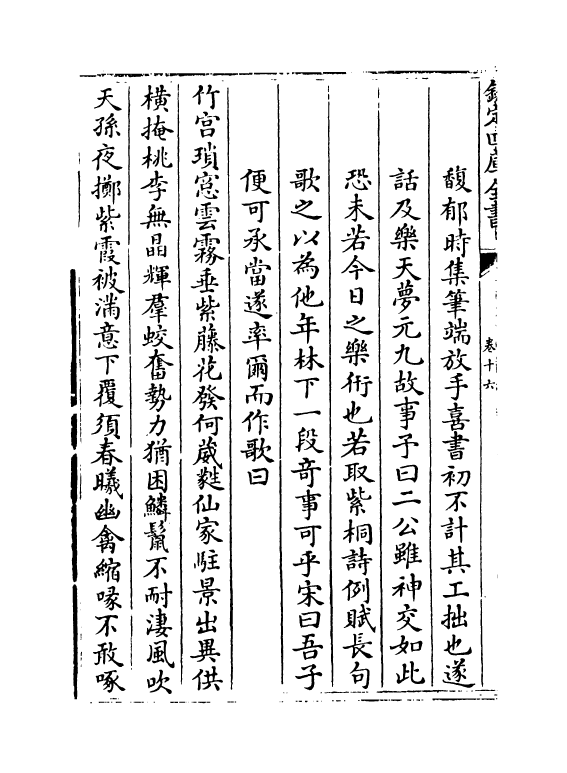 欽定四庫全書
卷十六
馥郁時集筆端放手喜書初不計其工拙也遂
話及樂天夢元九故事予曰二公雖神交如此
恐未若今日之樂術也若取紫桐詩例賦長句
歌之以為他年林下一段竒事可乎宋曰吾子
便可承當遂率爾而作歌曰
竹宫瑣窓雲霧垂紫藤花發何葳蕤仙家駐景出異供
横掩桃李無晶輝羣蛟奮勢力猶困鱗鬛不耐凄風吹
天孫夜擲紫霞被滿意下覆須春曦幽禽縮喙不敢啄